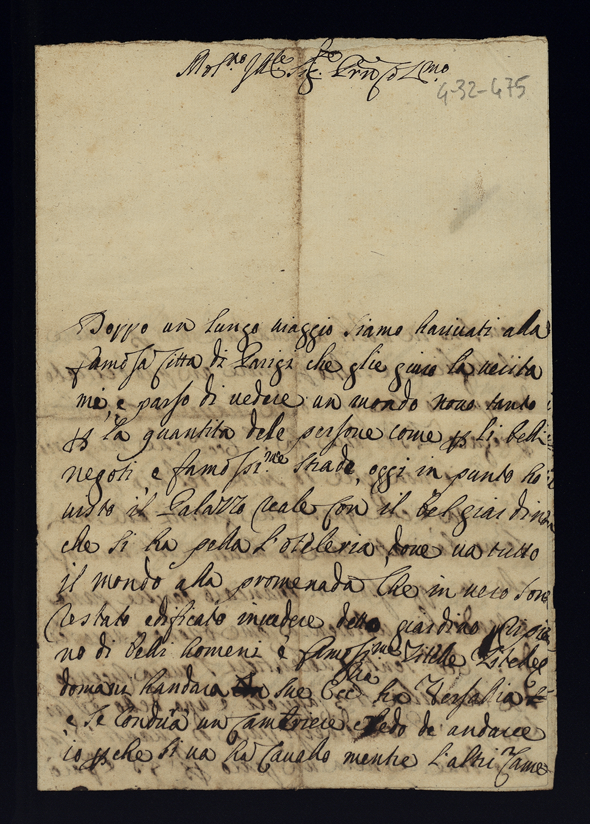 Mol.to Ill.e Sig.re
4-32-475
Doppo un lungo viaggio siamo harivati alla
famosa Citta di Parigi che glie giuro la verita
mi e parso di vedere un mondo novo tanto
la quantita dele persone come li belli
negoti, e famossime strade, oggi in punto ho
visto il Palazzo reale con il bel giardino
che si ha dove va tutto
il mondo alla promenada che in vero sone
restato edificato in vedere detto giardino
no di belli homeni e famossime
domani handara Sue Ecc.ha ha Versalia
e Se Condura un Cambriere Credo de andarce
io che si va ha Cavallo mentre l'altri Came